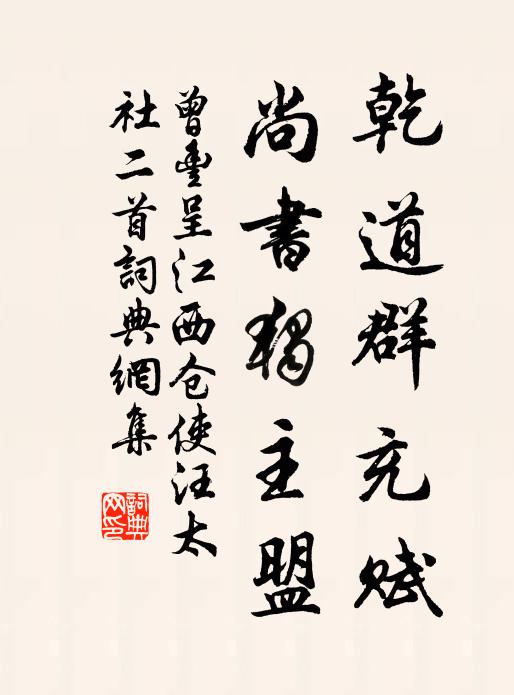 乾道群充赋
尚書独主盟
曾豊呈江西仓使汪太
社二首詞典網集
詞典网印